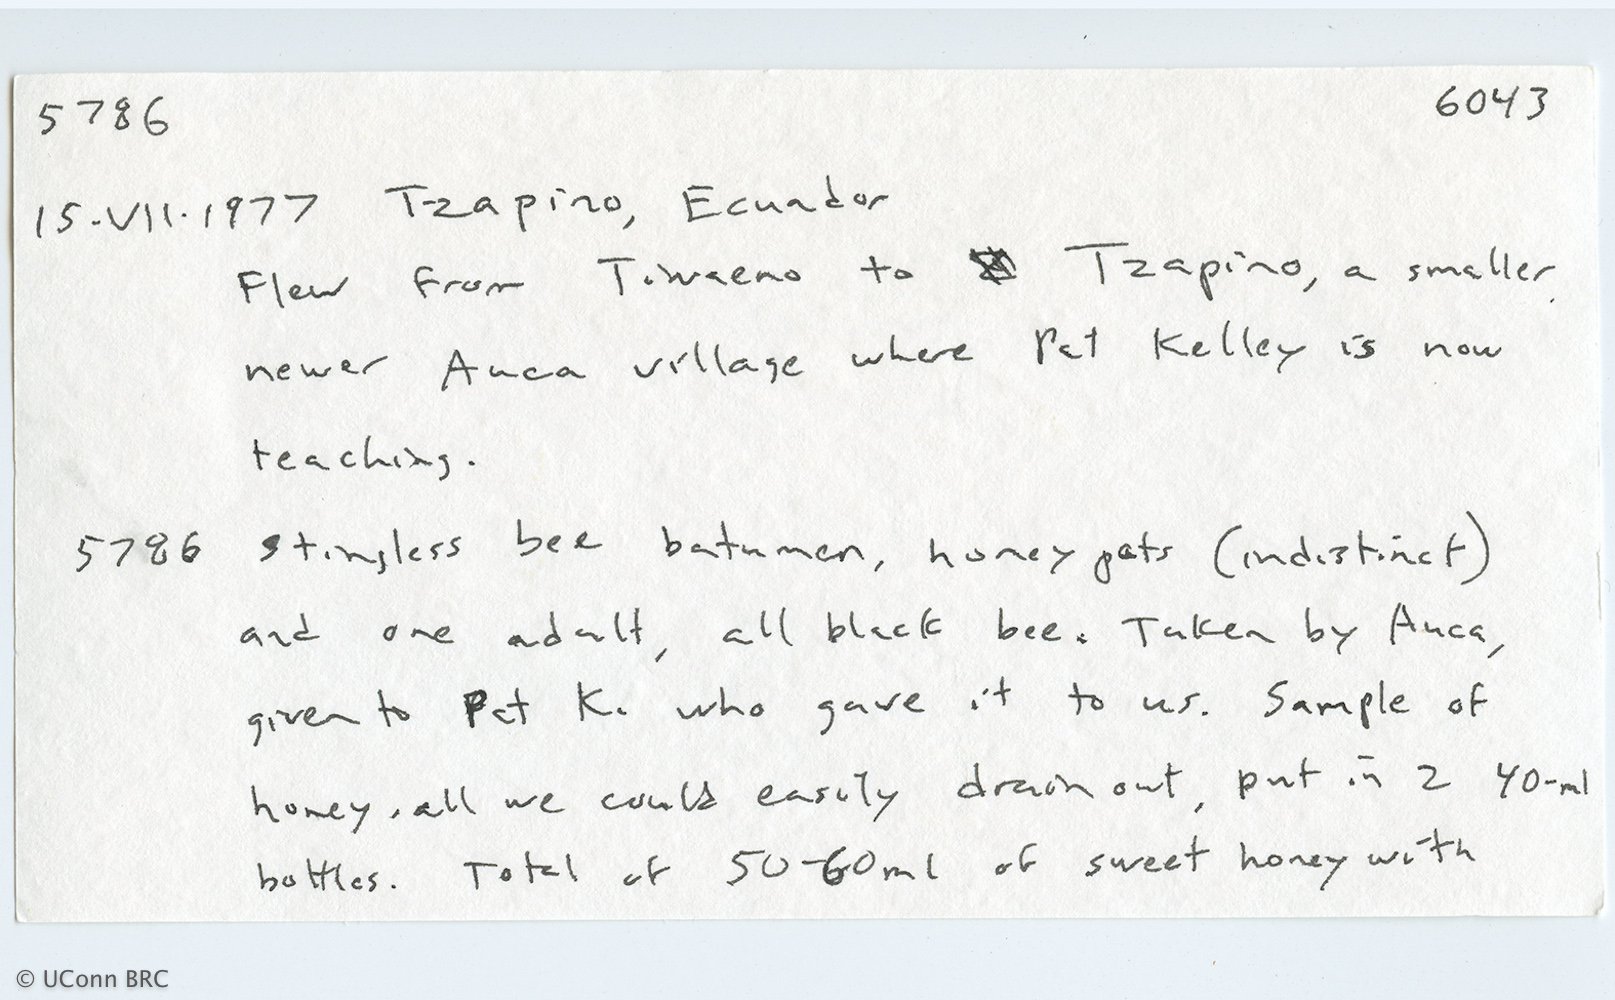 5786 6043
15.VII.1977 Tzapino, Ecuador
Flew from Tiwaeno to Tzapino, a smaller,
newer Auca village where Pat Kelley is now
teaching.
5786 Stingless bee batumen, honey pots (indistinct)
and one adult, all black bee. Taken by Auca,
given to Pat K. who gave it to us. Sample of
honey, all we could easily drain out, put in 2 40-ml
bottles. Total of 50-60ml of sweet honey with
© UConn BRC